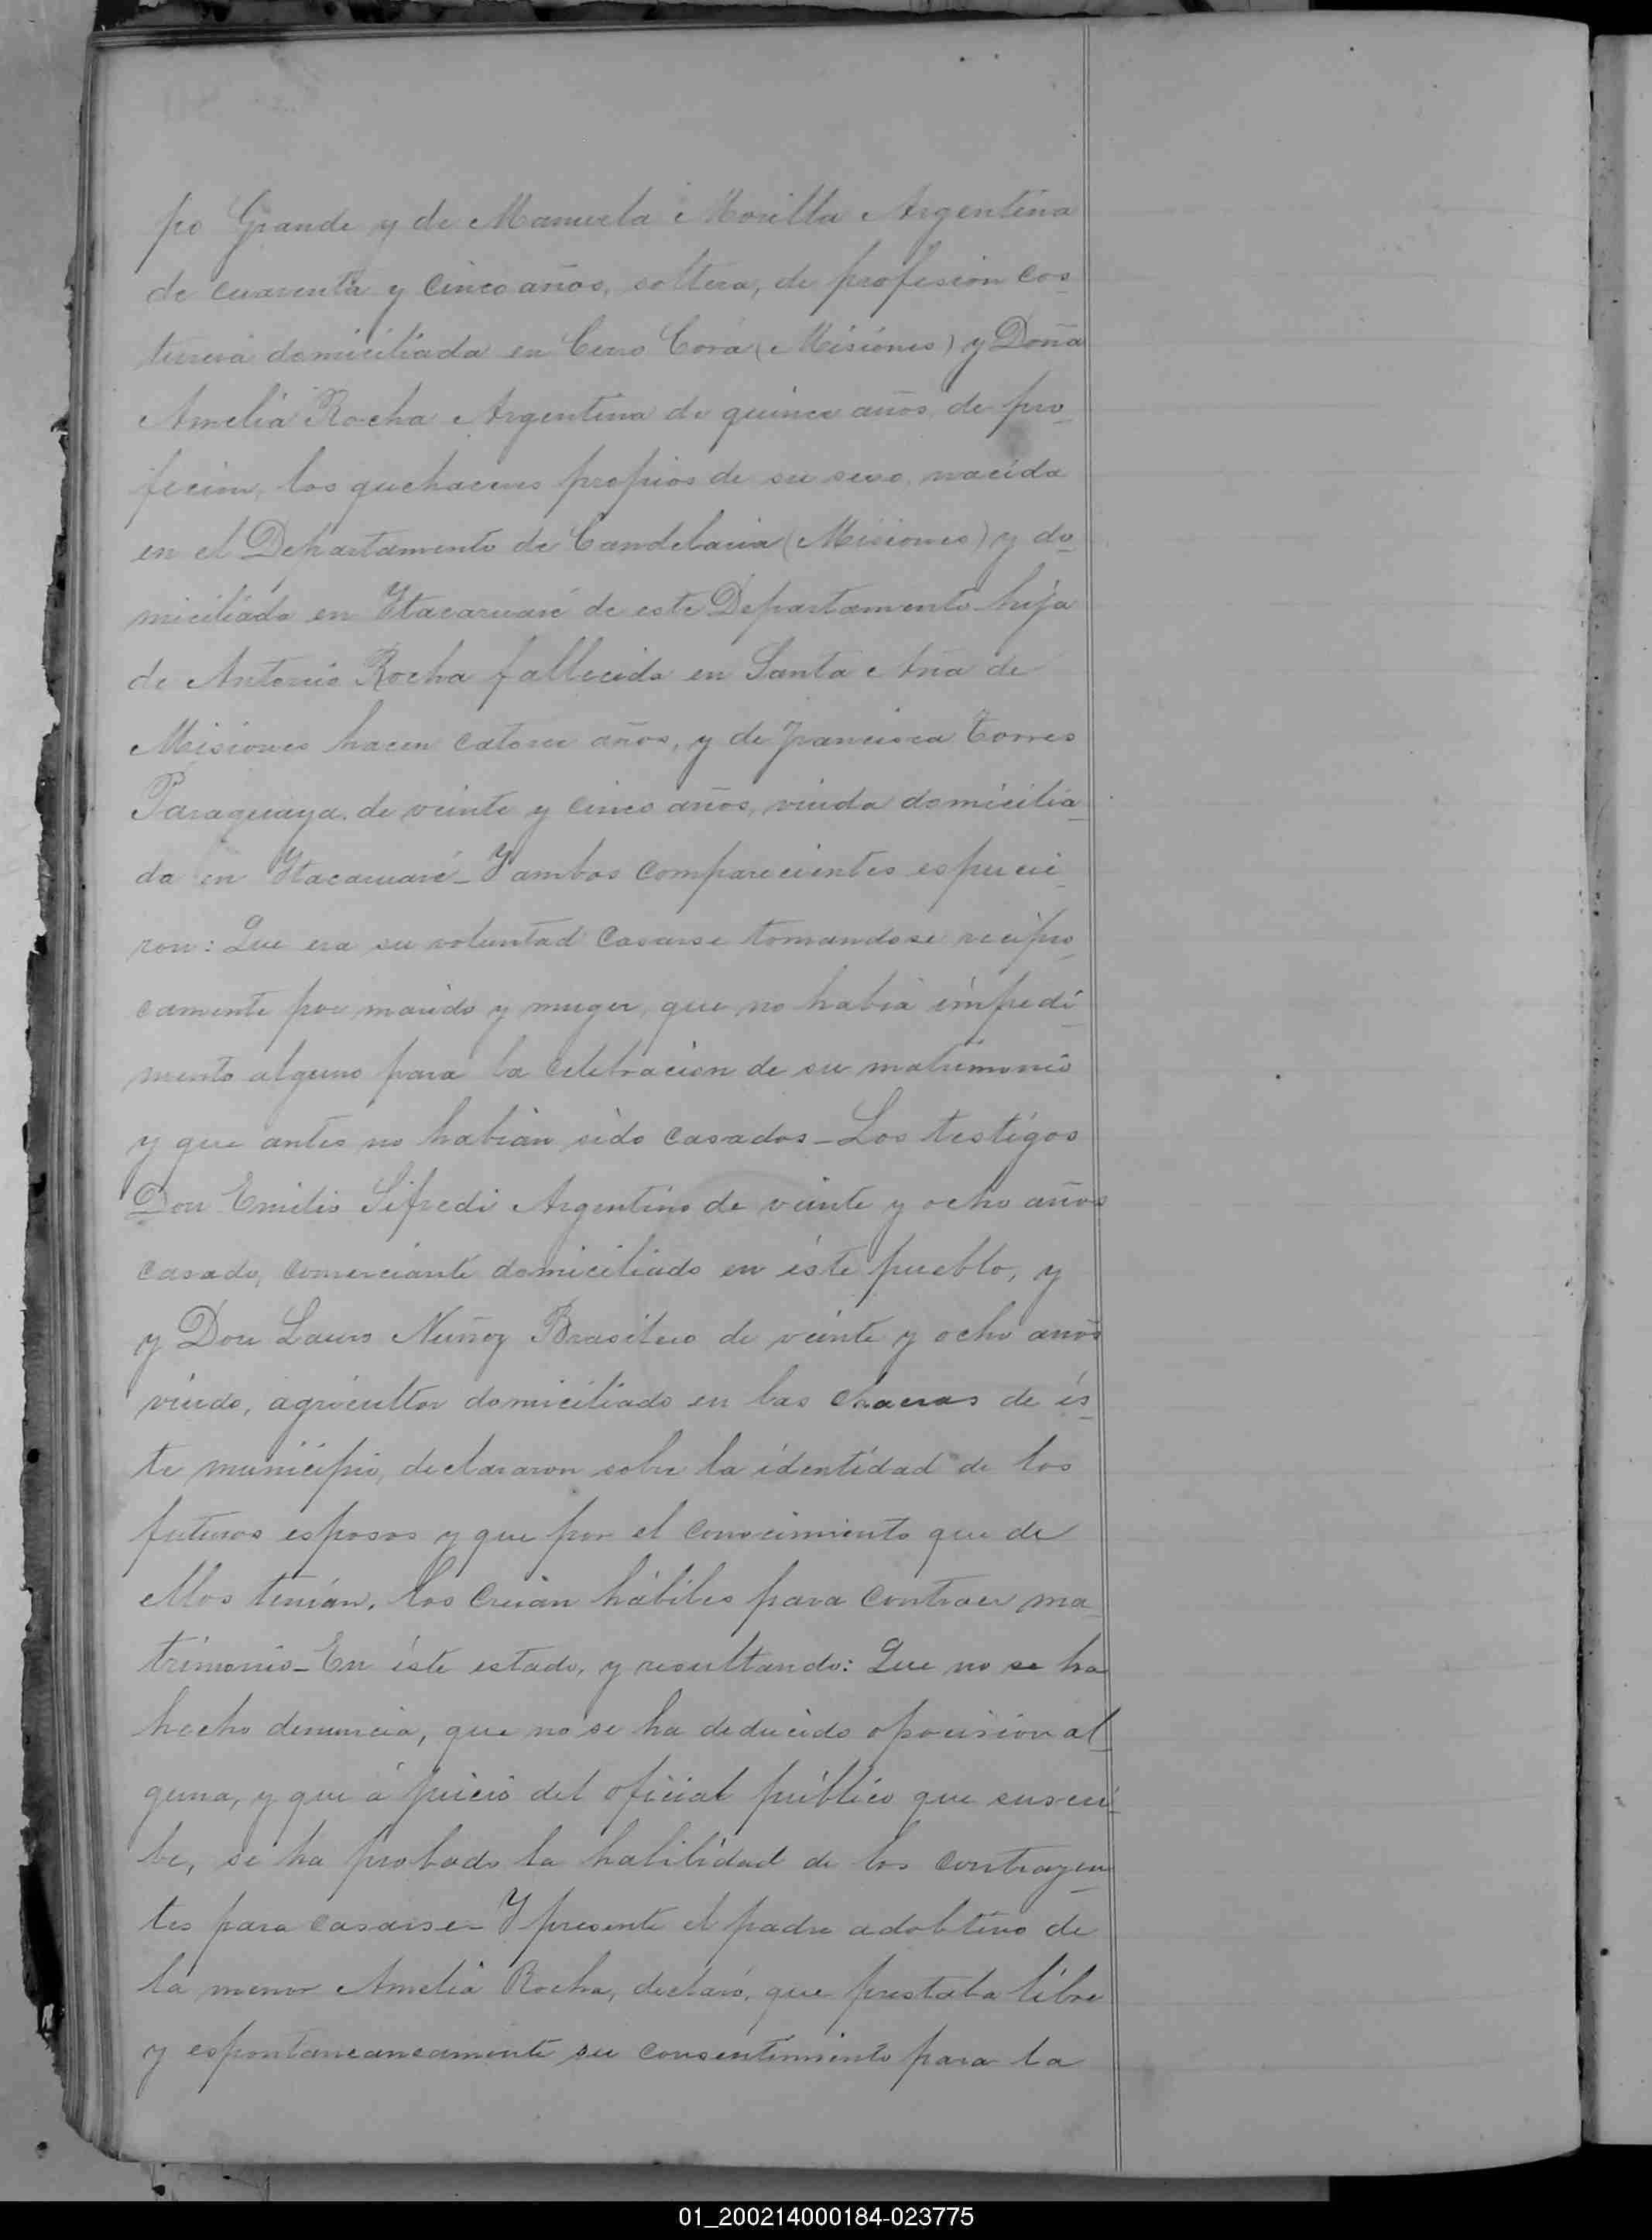 po Grande y de Manuela Morilla Argentina
de cuarenta y cinco años, soltera, de profesion cos_
turera domiciliada en Cerro Corá (Misiones) y Doña
Amelia Rocha Argentina de quince años, de pro_
fecion, los quehaceres propios de su sexo, nacida
en el Departamento de Candelaria (Misiones) y do_
miciliada en Itacaruaré de este Departamento hija
de Antonio Rocha fallecido en Santa Ana de
Misiones hacen catorce años, y de Francisca Torres
Paraguaya, de veinte y cinco años, viuda domicilia_
da en Itacaruaré_ Y ambos comparecientes espucie_
ron: Que era su voluntad casarse tomandose recipro_
camente por marido y muger, que no habia impedi_
mento alguno para la celebracion de su matrimonio
y que antes no habian sido casados_ Los testigos
Don Emilio Sifredi Argentino de veinte y ocho años
casado, comerciante domiciliado en éste pueblo, y
y Don Lauro Nuñez Brasilero de veinte y ocho años
viudo, agricultor domiciliado en las chacras de és_
te municipio, declararon sobre la identidad de los
futuros esposos y que por el conocimiento que de
ellos tenian, los creian hábiles para contraer ma_
trimonio_ En éste estado, y resultando: Que no se ha
hecho denuncia, que no se ha deducido opocision al_
guna, y que á juicio del oficial público que suscri_
be, se ha probado la habilidad de los contrayen_
tes para casarse_ Y presente el padre adobtivo de
la menor Amelia Rocha, declaró, que prestaba libre
y espontaneaneamente su consentimiento para la
01_200214000184-023775